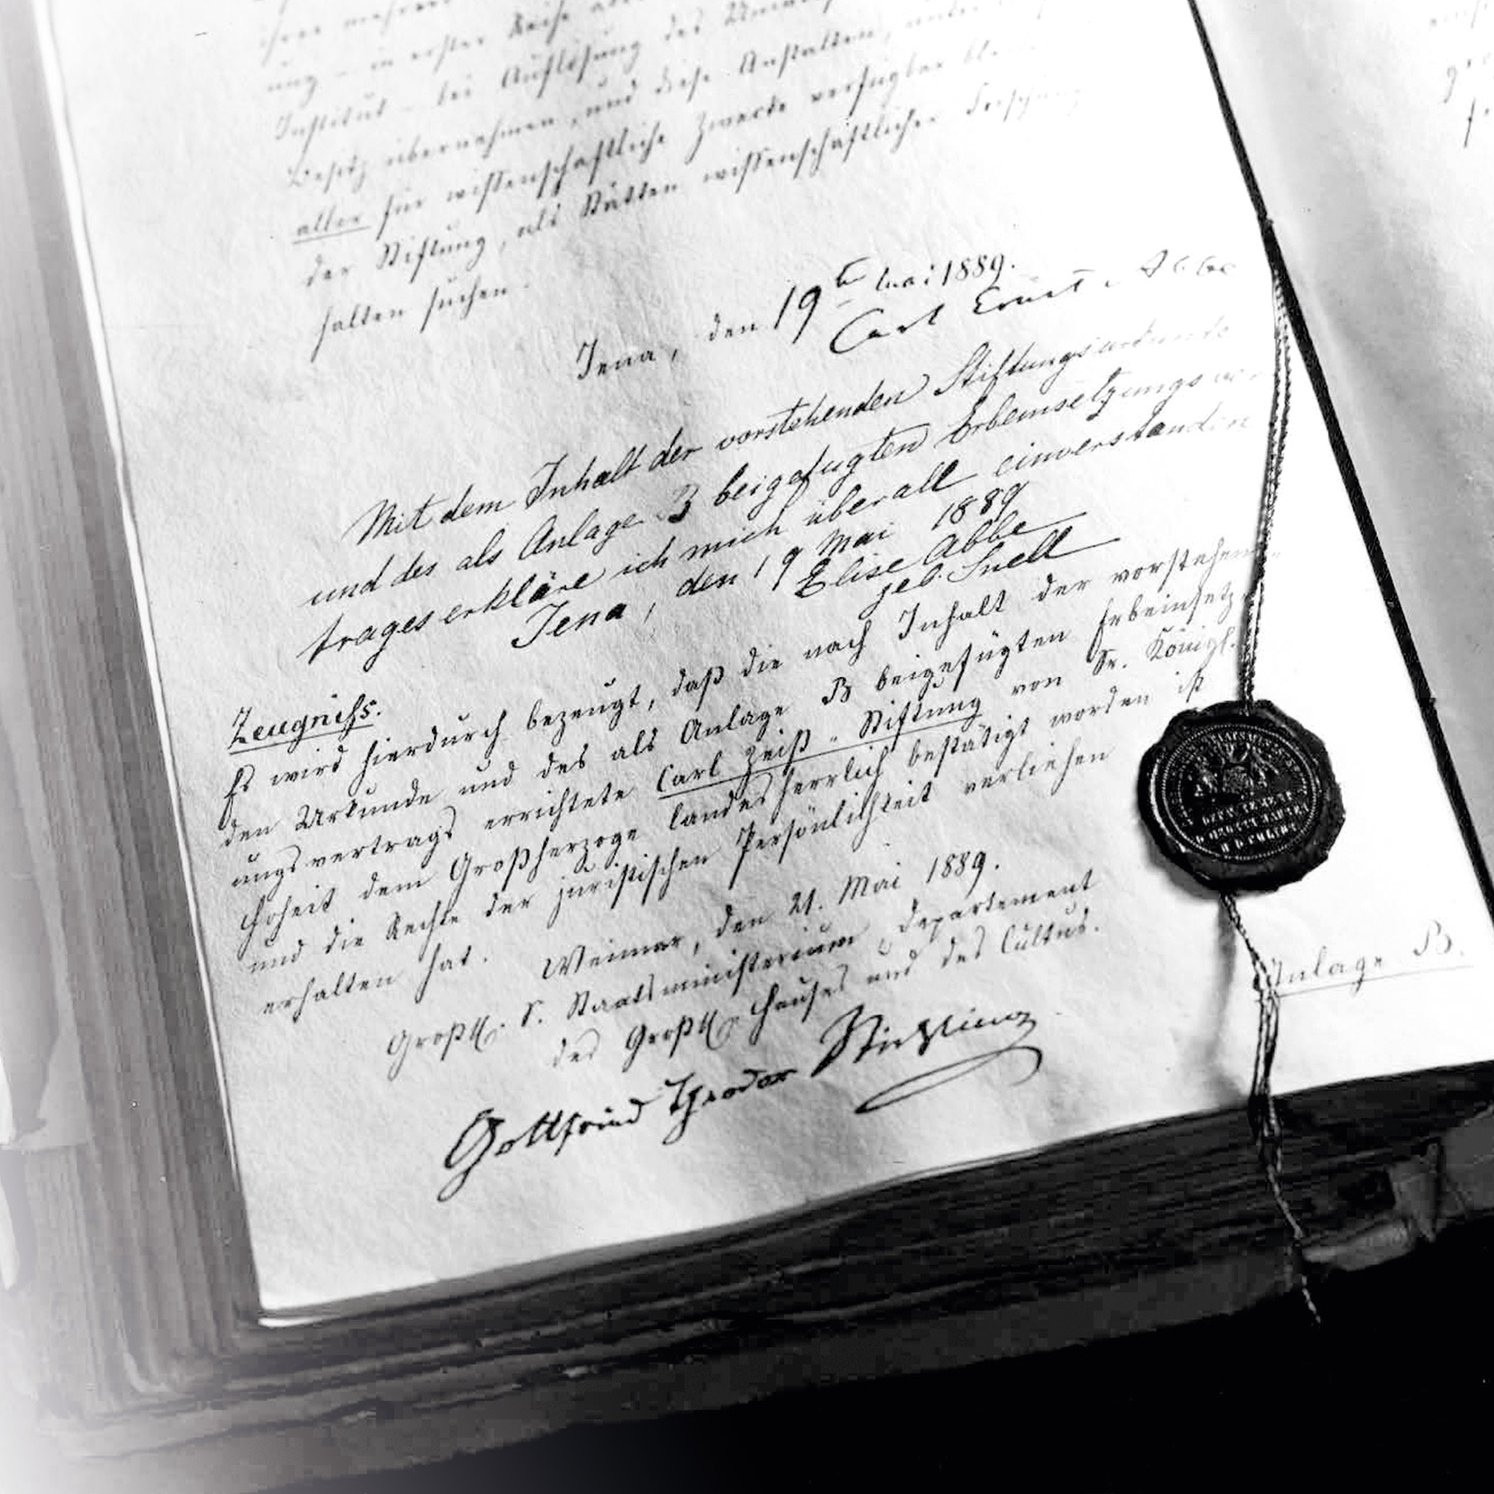 ung – in erster Reihe
Institut – bei Auflösung des
Besitz übernehmen, und diese Anstalten,
aller für wissenschaftliche Zwecke verfügbar
der Stiftung, als Stätten wissenschaftlicher
halten suchen.
Jena, den 19t Mai 1889.
Carl Ernst Abbe
Mit dem Inhalt der vorstehenden Stiftungsurkunde
und des als Anlage B beigefügten Erbeinsetzungsver
trages erkläre ich mich überall einverstanden
Jena, den 19 Mai 1889
Elise Abbe
geb. Snell
Zeugniss.
Es wird hierdurch bezeugt, daß die nach Inhalt der vorstehen
den Urkunde und des als Anlage B beigefügten Erbeinsetz
ungsvertrags errichtete Carl Zeiß-Stiftung von Sr. Königl.
Hoheit dem Großherzoge landesherrlich bestätigt worden ist
und die Rechte der juristischen Persönlichkeit verliehen
erhalten hat.
Weimar, den 21. Mai 1889.
Großh. S. Staatsministerium, Departement
des Großh. Hauses und des Cultus.
Gottfried Theodor Stichling
Anlage B.